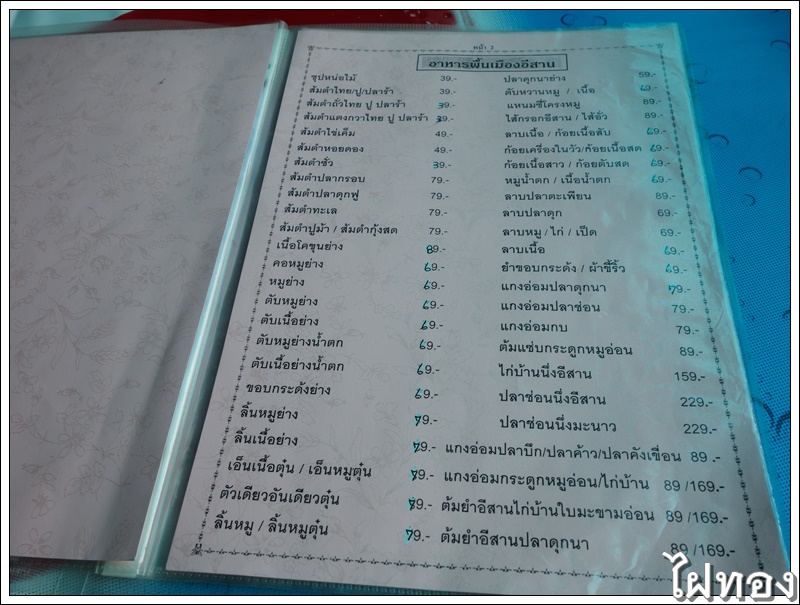 หน้า 2
อาหารพื้นเมืองอีสาน
ซุปหน่อไม้ 39.-
ส้มตำไทย/ปู/ปลาร้า 39.-
ส้มตำถั่วไทย ปู ปลาร้า 39.-
ส้มตำแตงกวาไทย ปู ปลาร้า 39.-
ส้มตำไข่เค็ม 49.-
ส้มตำหอยดอง 49.-
ส้มตำซั่ว 39.-
ส้มตำปลากรอบ 79.-
ส้มตำปลาดุกฟู 79.-
ส้มตำทะเล 79.-
ส้มตำปูม้า / ส้มตำกุ้งสด 79.-
เนื้อโคขุนย่าง 89.-
คอหมูย่าง 69.-
หมูย่าง 69.-
ตับหมูย่าง 69.-
ตับเนื้อย่าง 69.-
ตับหมูย่างน้ำตก 69.-
ตับเนื้อย่างน้ำตก 69.-
ขอบกระด้งย่าง 69.-
ลิ้นหมูย่าง 79.-
ลิ้นเนื้อย่าง 79.-
เอ็นเนื้อตุ๋น / เอ็นหมูตุ๋น 79.-
ตัวเดียวอันเดียวตุ๋น 89.-
ลิ้นหมู / ลิ้นหมูตุ๋น 79.-
ปลาดุกนาย่าง 59.-
ตับหวานหมู / เนื้อ 69.-
แหนมซี่โครงหมู 89.-
ไส้กรอกอีสาน / ไส้อั่ว 89.-
ลาบเนื้อ / ก้อยเนื้อสับ 69.-
ก้อยเครื่องในวัว/ก้อยเนื้อสด 69.-
ก้อยเนื้อสาว / ก้อยตับสด 69.-
หมูน้ำตก / เนื้อน้ำตก 69.-
ลาบปลาตะเพียน 89.-
ลาบปลาดุก 69.-
ลาบหมู / ไก่ / เป็ด 69.-
ลาบเนื้อ 69.-
ยำขอบกระด้ง / ผ้าขี้ริ้ว 69.-
แกงอ่อมปลาดุกนา 79.-
แกงอ่อมปลาช่อน 79.-
แกงอ่อมกบ 79.-
ต้มแซ่บกระดูกหมูอ่อน 89.-
ไก่บ้านนึ่งอีสาน 159.-
ปลาช่อนนึ่งอีสาน 229.-
ปลาช่อนนึ่งมะนาว 229.-
แกงอ่อมปลาบึก/ปลาค้าว/ปลาคังเขื่อน 89 .-
แกงอ่อมกระดูกหมูอ่อน/ไก่บ้าน 89 /169.-
ต้มยำอีสานไก่บ้านใบมะขามอ่อน 89 /169.-
ต้มยำอีสานปลาดุกนา 89 /169.-
ไฝทอง